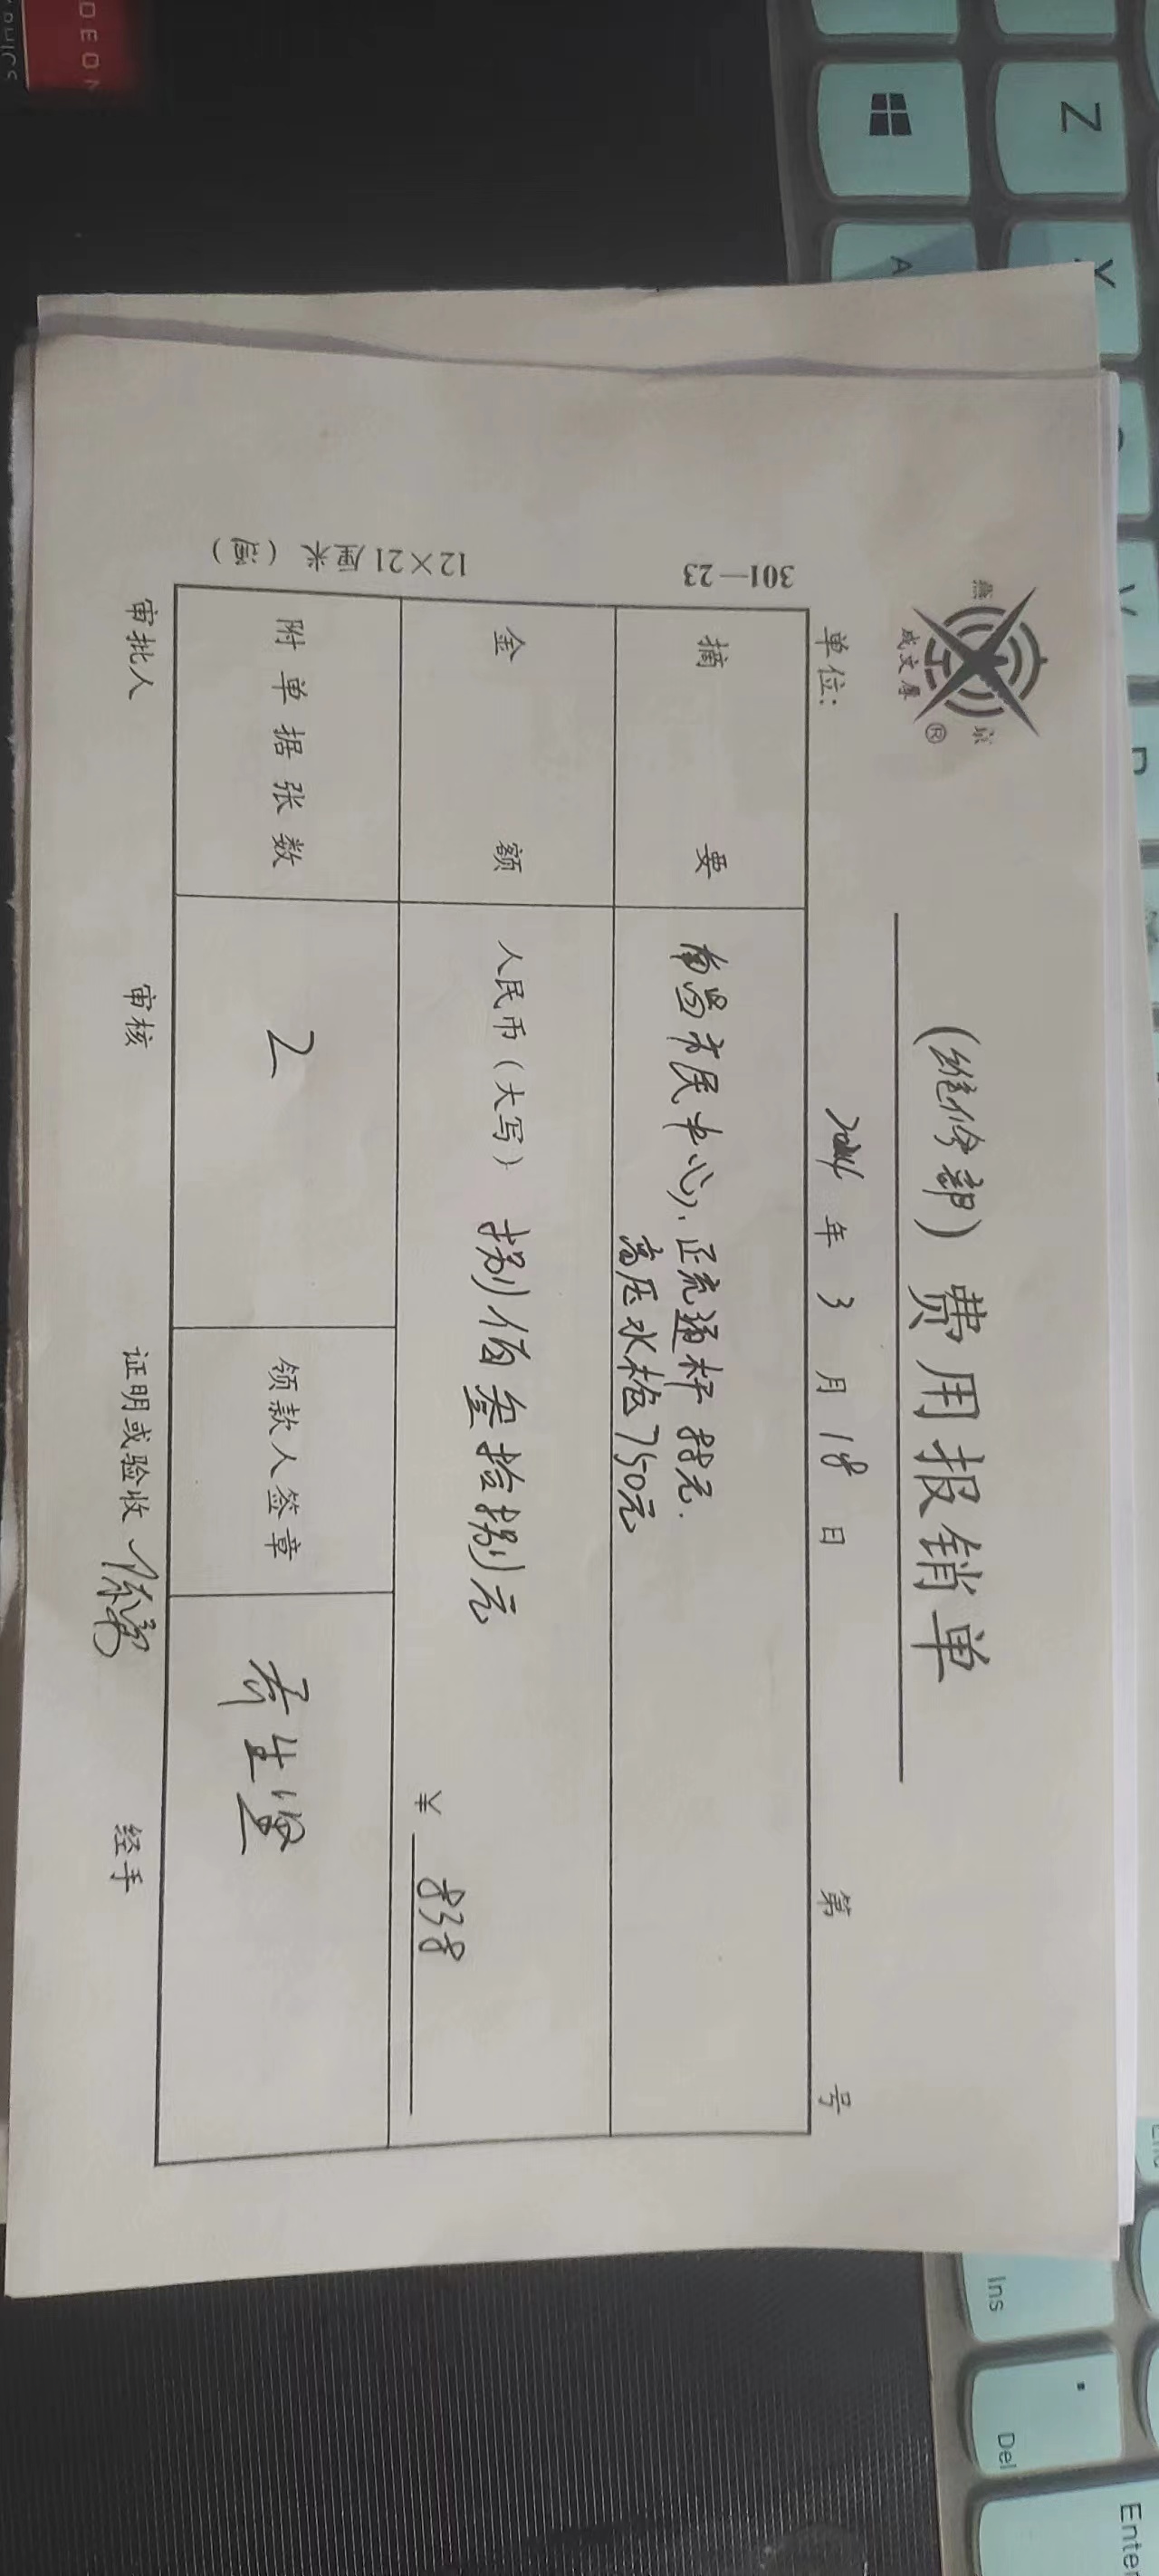 燕 京
成文厚 ®
(维修部) 费用报销单
单位: 2024 年 3 月 18 日 第 号
摘要 南昌市民中心), 正流通杆 88元.
高压水枪750元
金额 人民币(大写) 捌佰叁拾捌元
¥ 838
附单据张数 2 领款人签章
审批人 审核 证明或验收 经手
301—23
12×21厘米
Z
A
X
Ins
Del
Enter